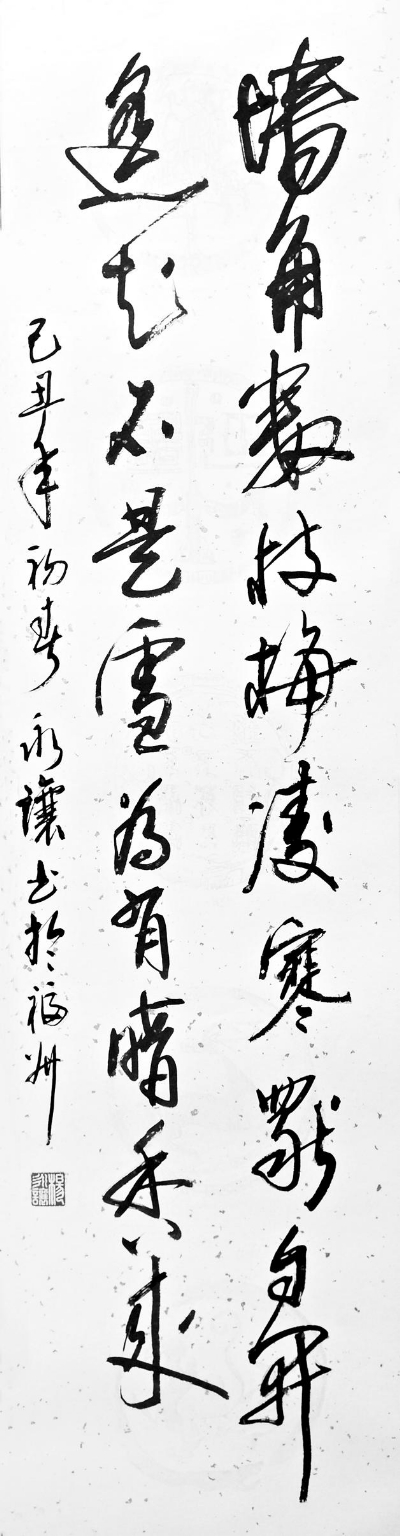 墻角數枝梅凌寒獨自開
遙知不是雪為有暗香來
己丑年初春永讓书於福州